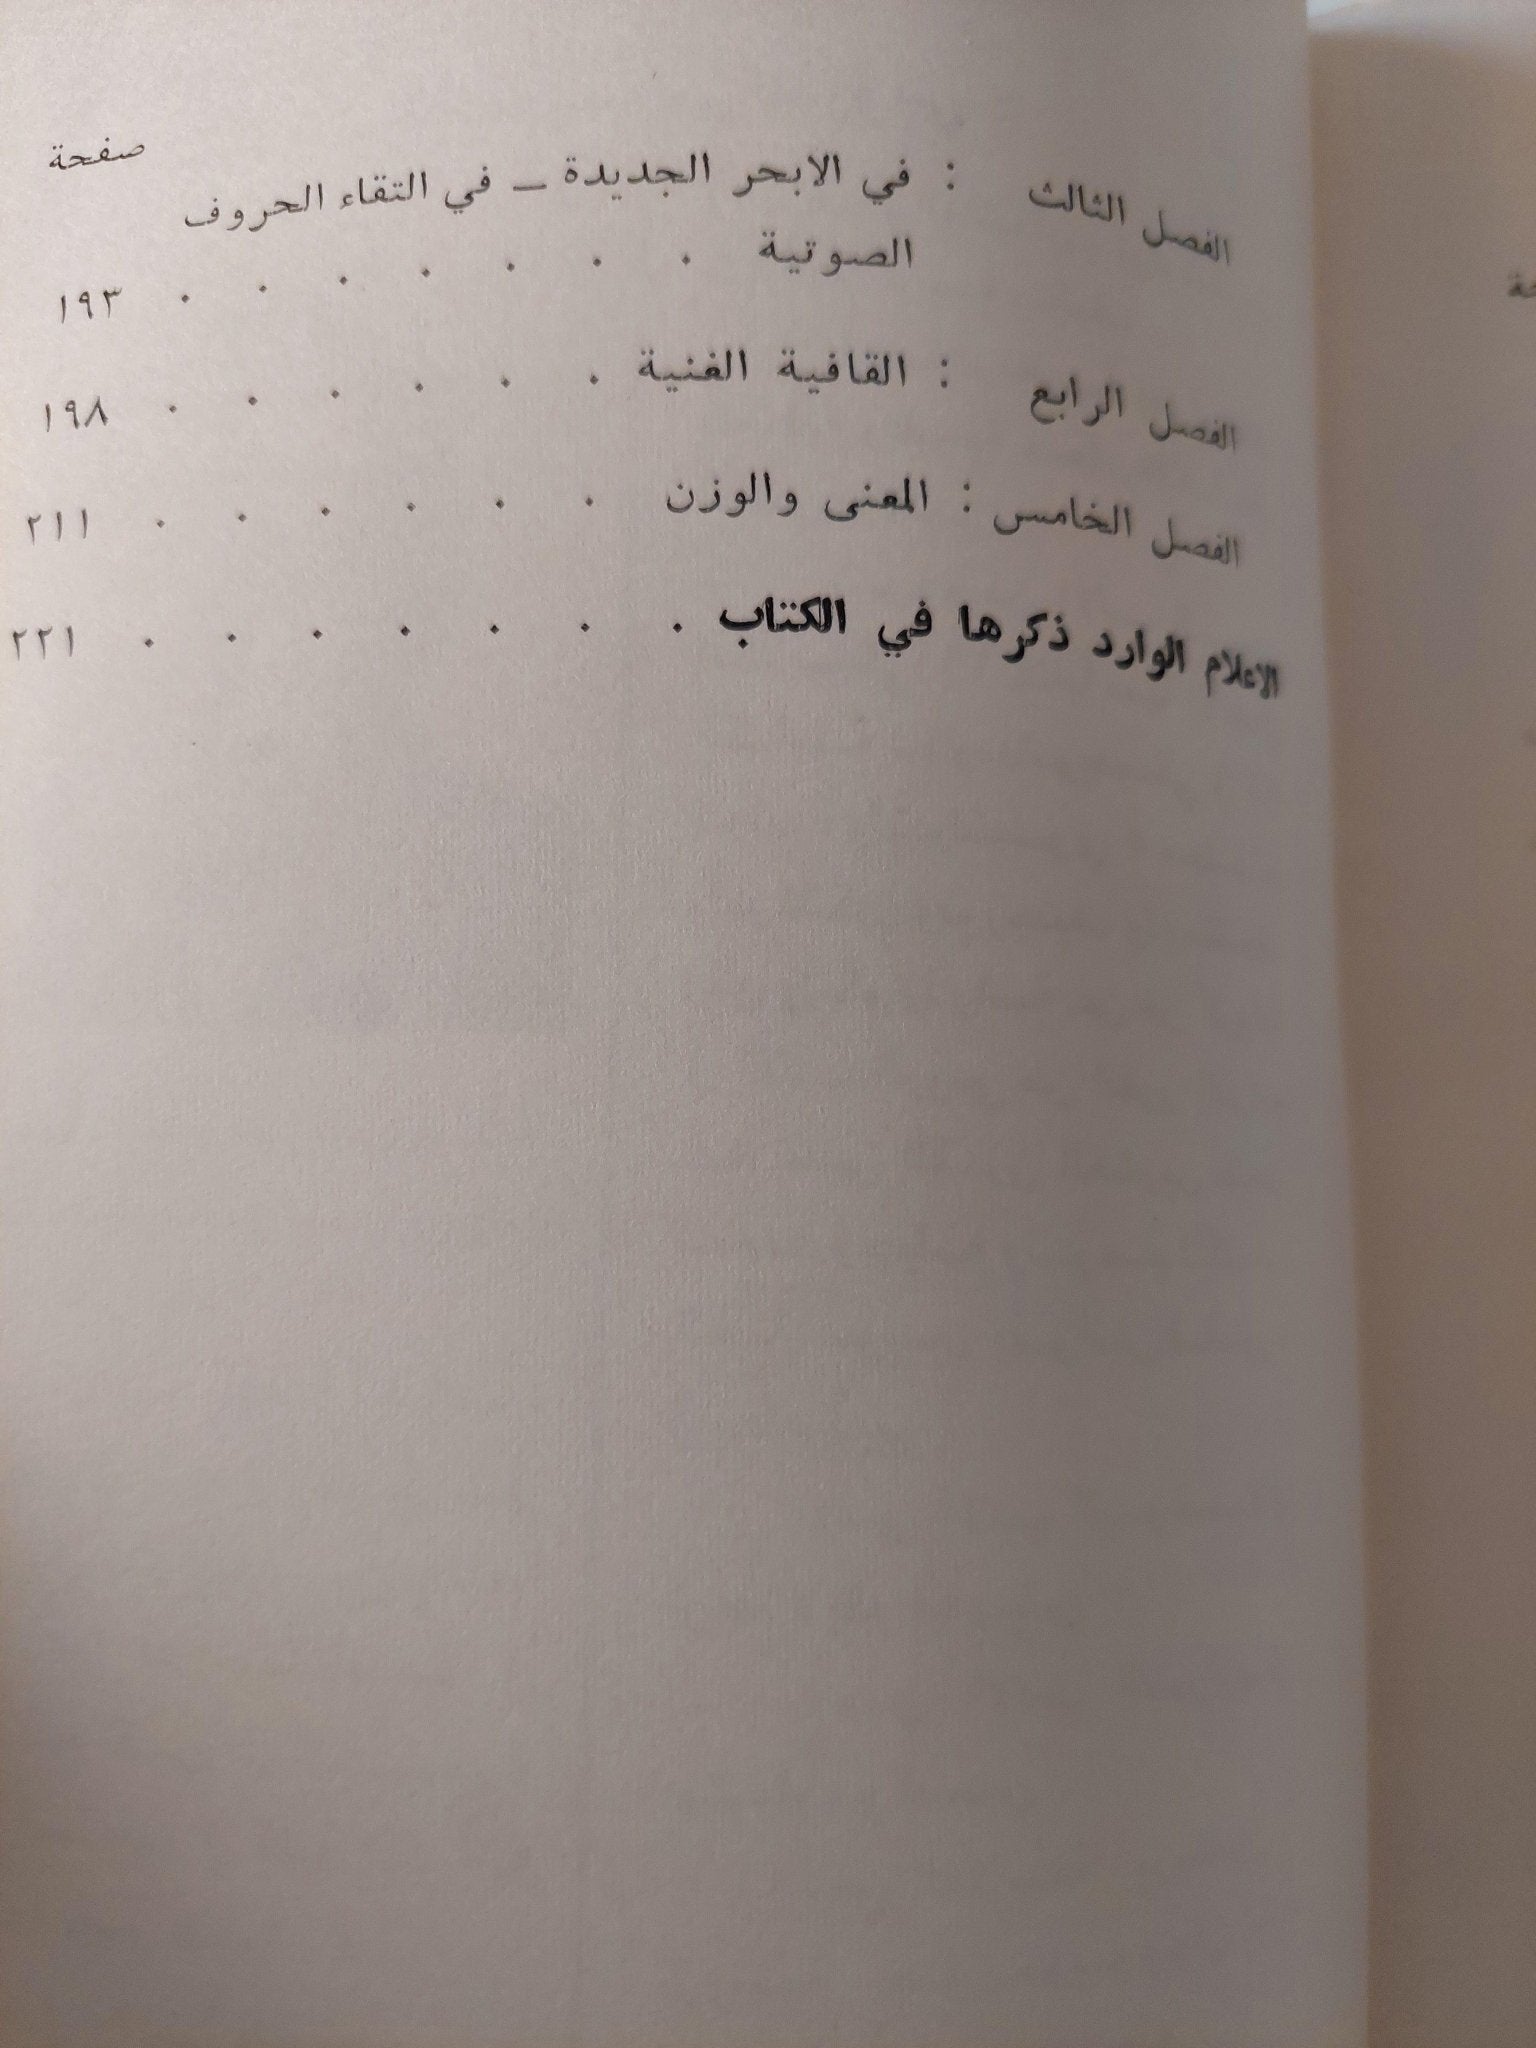 صفحة
الفصل الثالث : في الابحر الجديدة – في التقاء الحروف
الصوتية . . . . . . . ١٩٣
الفصل الرابع : القافية الغنية . . . . . . ١٩٨
الفصل الخامس : المعنى والوزن . . . . . . ٢١١
الاعلام الوارد ذكرها في الكتاب . . . . . . . ٢٢١